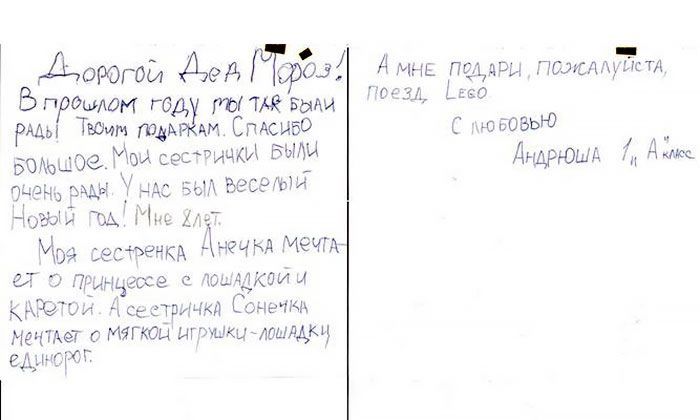 Дорогой Дед Мороз!
В прошлом году мы так были
рады Твоим подаркам. Спасибо
большое. Мои сестрички были
очень рады. У нас был веселый
Новый год! Мне 8 лет.
Моя сестренка Анечка мечта-
ет о принцессе с лошадкой и
каретой. А сестричка Сонечка
мечтает о мягкой игрушки-лошадку
единорог.
А мне подари, пожалуйста,
поезд Lego
С любовью
Андрюша 1 „А" класс